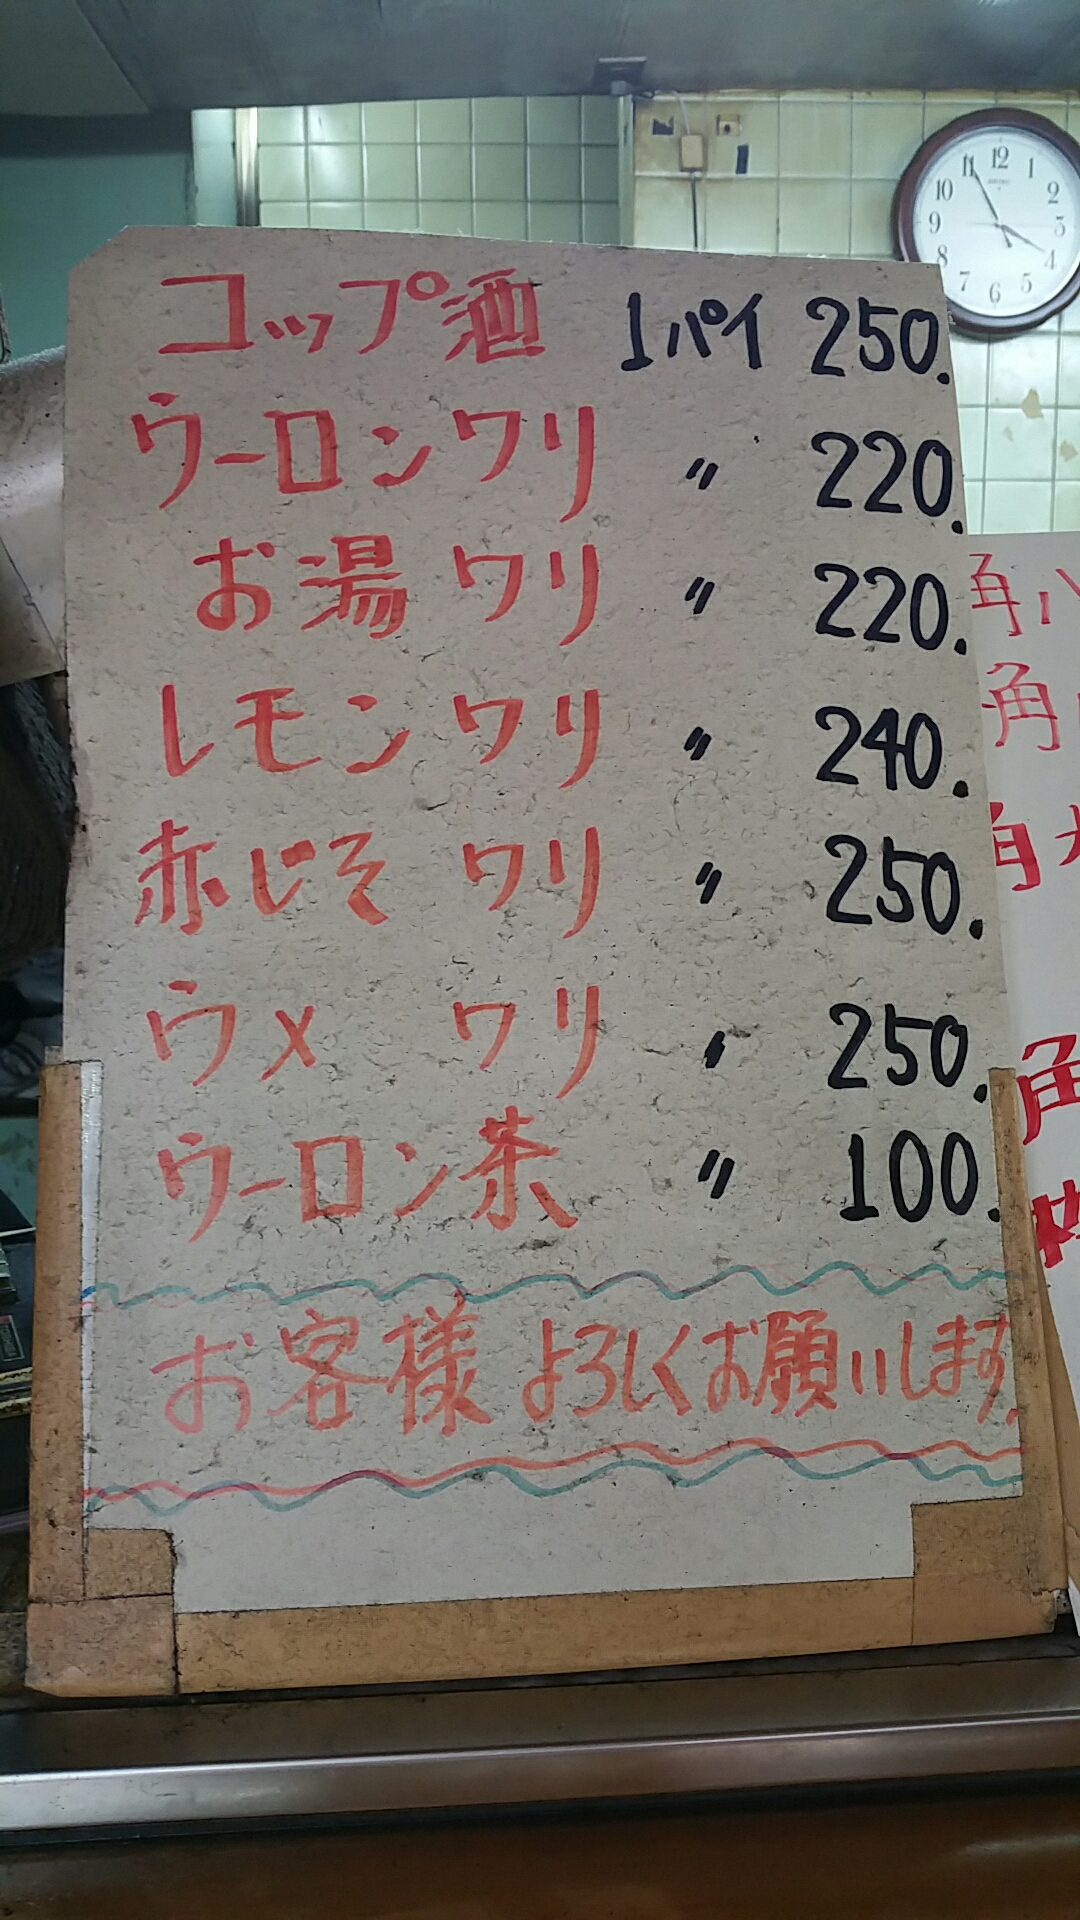 コップ酒 1パイ 250.
ウーロンワリ 〃 220.
お湯ワリ 〃 220.
レモンワリ 〃 240.
赤じそワリ 〃 250.
ウメワリ 〃 250.
ウーロン茶 〃 100.
お客様よろしくお願いします.
12
1
2
3
4
5
6
7
8
9
10
11
角ハ
角
角
角